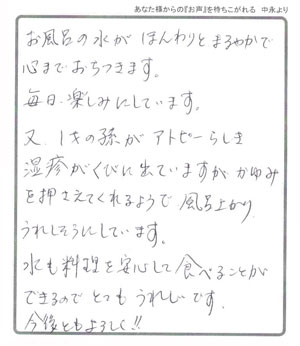 あなた様からの『お声』を待ちこがれる 中永より
お風呂の水が ほんわりと まろやかで
心までおちつきます。
毎日楽しみにしています。
又、1才の孫が アトピーらしき
湿疹がくびに出ていますが かゆみ
を押さえてくれるようで 風呂上がり
うれしそうにしています。
水も料理を安心して 食べることが
できるので とっても うれしいです。
今後ともよろしく!!